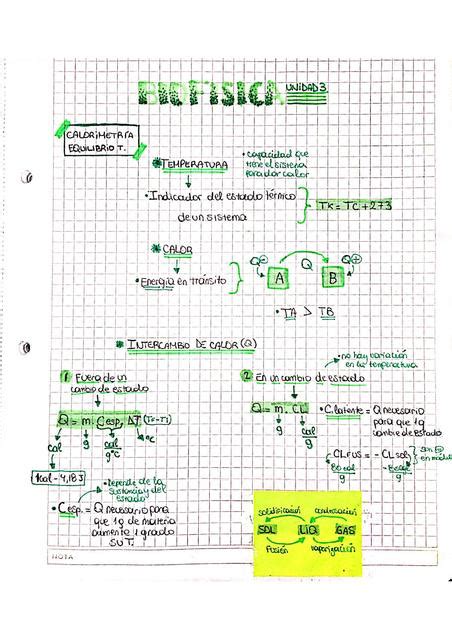 BIOFISICA UNIDAD 3
CALORIMETRÍA
EQUILIBRIO T.
* TEMPERATURA
• capacidad que
tiene el sistema
para dar calor
• Indicador del estado térmico
de un sistema
TK = TC + 273
* CALOR
• Energía en tránsito
Q⊖ A Q B Q⊕
• TA > TB
* INTERCAMBIO DE CALOR (Q)
1 Fuera de un
cambio de estado
Q = m. Cesp. ΔT (TF-Ti)
cal g cal/g°C °C
1cal = 4,18 J
• Depende de la
sustancia y del
estado
• Cesp = Q necesario para
que 1g de materia
aumente 1 grado
su T.
2 En un cambio de estado
• no hay variación
en la temperatura
Q = m. CL
g cal/g
• C. latente = Q necesario
para que 1g
cambie de estado
CL FUS = - CL sol
80 cal/g -80 cal/g
son =
en modulo
solidificación condensación
SOL LIQ GAS
Fusión vaporización
NOTA